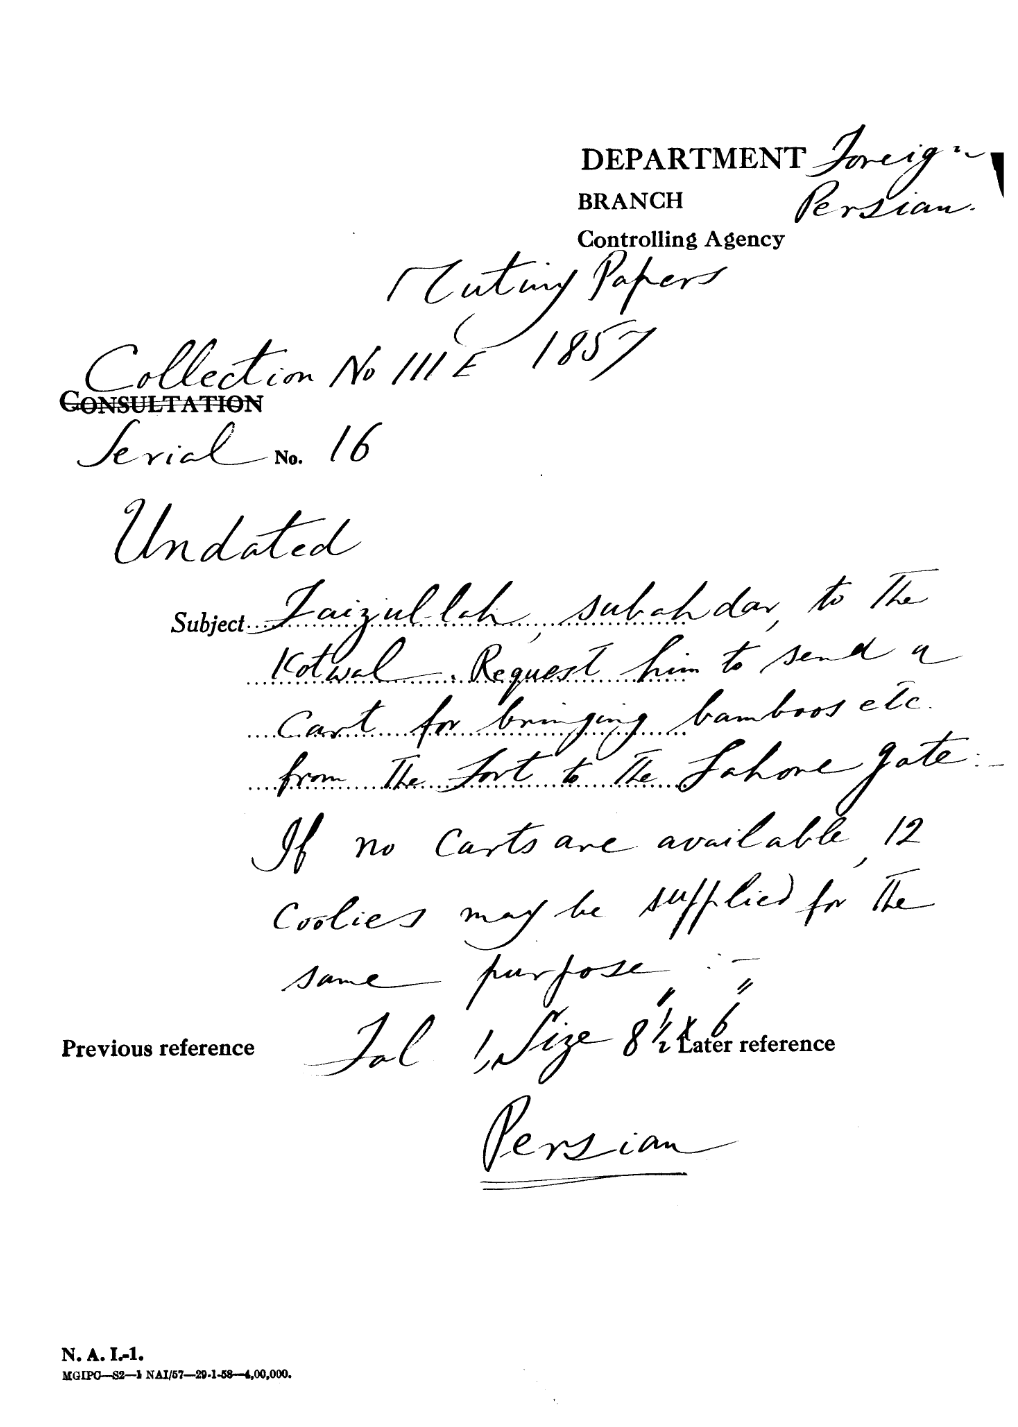 DEPARTMENT Foreign
BRANCH Persian.
Controlling Agency
Mutiny Papers
Collection No III E 1857
CONSULTATION
Serial No. 16
Undated
Subject Faizullah, subahdar, to the
Kotwal. Request him to send a
Cart for bringing bamboos etc.
from the Fort to the Lahore gate:-
If no Carts are available, 12
Coolies may be supplied for the
same purpose :-
Previous reference Fol 1, Size 8 1/2" x 6" Later reference
Persian
N. A. I.-1.
MGIPC—S2—1 NAI/57—29-1-58—4,00,000.